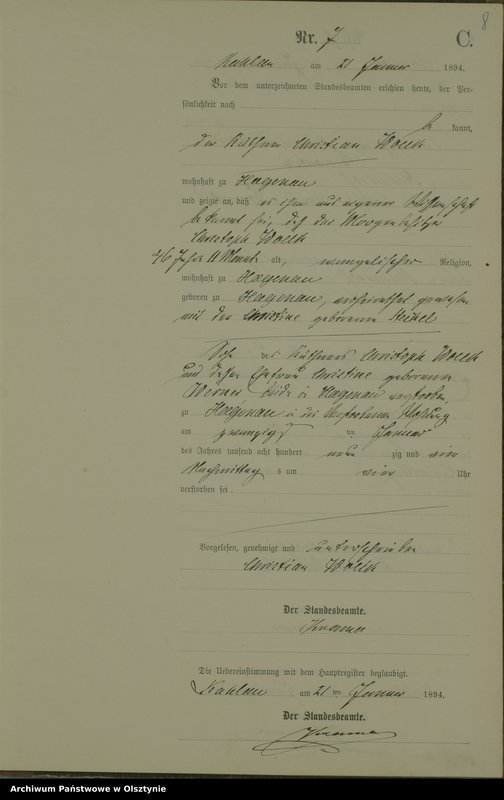 8
Nr. 7 C.
Kahlau am 21 Januar 1894.
Vor dem unterzeichneten Standesbeamten erschien heute, der Per-
sönlichkeit nach
be kannt,
der Käthner Christian
wohnhaft zu Hagenau
und zeigte an, daß es ihm aus eigener Wissenschaft
bekannt sei, daß der
Christoph
46 Jahre 11 Monate alt, evangelischer Religion,
wohnhaft zu Hagenau
geboren zu Hagenau, verheirathet gewesen
mit der Christine geborenen
Sohn des Käthners Christoph
und dessen Ehefrau Christine geborenen
Werner beide in Hagenau verstorben
zu Hagenau in des Verstorbenen Wohnung
am zwanzigsten Januar
des Jahres tausend acht hundert neun zig und vier
Nachmittags um vier Uhr
verstorben sei.
Vorgelesen, genehmigt und unterschrieben
Christian
Der Standesbeamte.
Die Uebereinstimmung mit dem Hauptregister beglaubigt.
Kahlau am 21 ten Januar 1894.
Der Standesbeamte.
Archiwum Państwowe w Olsztynie